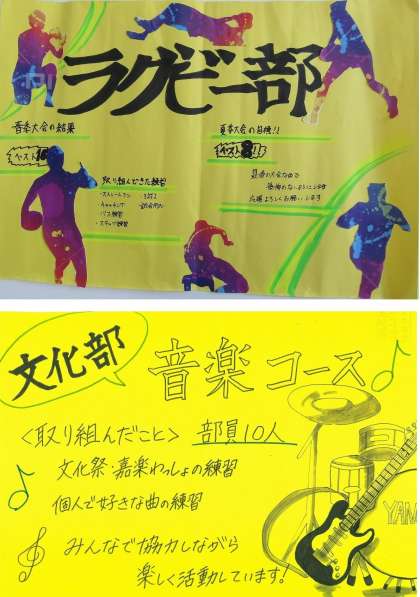 ラグビー部
春季大会の結果
ベスト16
取り組んできた練習
・パス練習
・ステップ練習
夏季大会の目標!!
ベスト8!!
応援よろしくお願いします
文化部
音楽コース
<取り組んだこと> 部員10人
文化祭・嘉楽わっしょの練習
個人で好きな曲の練習
みんなで協力しながら
楽しく活動しています!
YAM